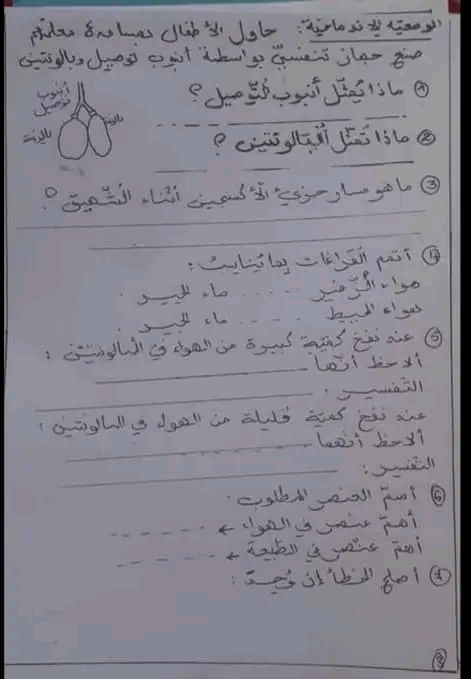 الوضعيّة الإدماجيّة: حاول الأطفال بمساعدة معلّمهم
صنع جهاز تنفّسيّ بواسطة أنبوب توصيل وبالونتين
أنبوب
توصيل
بالونة
بالونة
① ماذا يُمثّل أنبوب التّوصيل؟
② ماذا تُمثّل البالونتين؟
③ ما هو مسار جزيء الأكسجين أثناء الشّهيق؟
④ أتمّم الفراغات بما يناسب:
هواء الزّفير ..... ماء الجير.
هواء المحيط ..... ماء الجير.
⑤ عند نفخ كميّة كبيرة من الهواء في البالونتين:
ألاحظ أنّها
التّفسير:
عند نفخ كميّة قليلة من الهواء في البالونتين:
ألاحظ أنّهما
التفسير:
⑥ أسمّ العنصر المطلوب.
أهمّ عنصر في الهواء ←
أهمّ عنصر في الطّبيعة ←
⑦ أصلح الخطأ إن وُجِدَ:
③